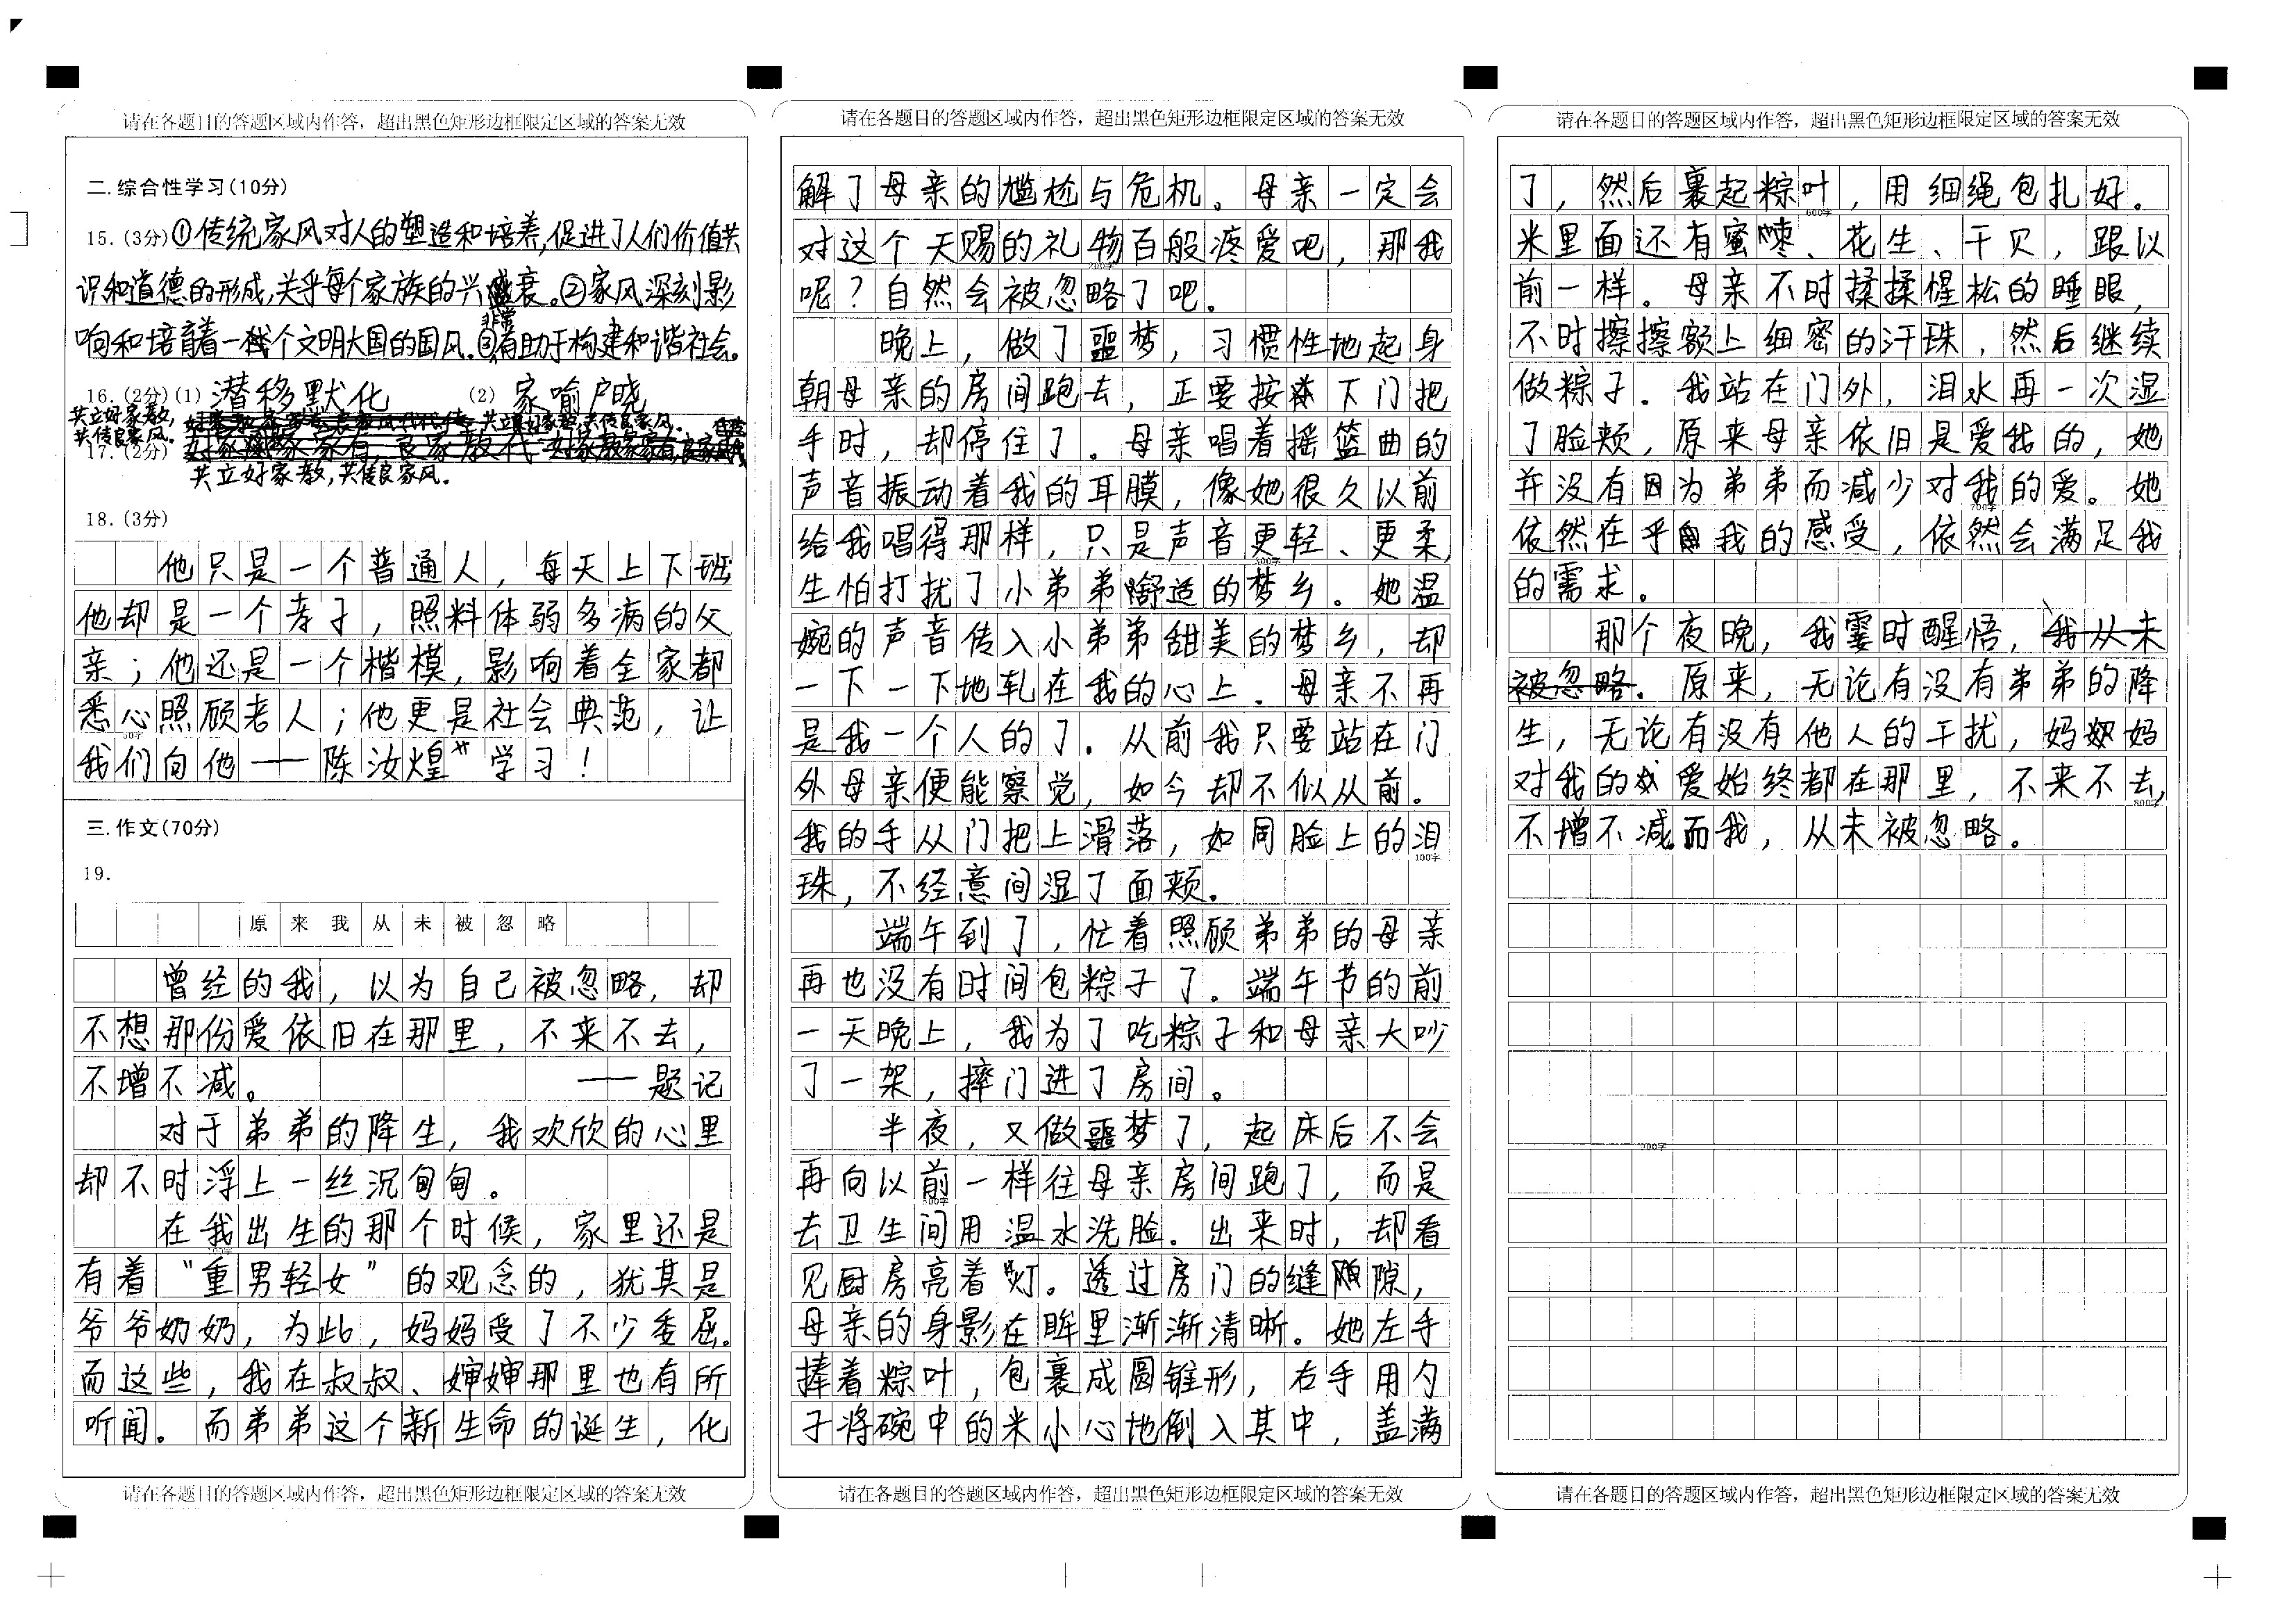 请在各题目的答题区域内作答，超出黑色矩形边框限定区域的答案无效
二.综合性学习(10分)
15.(3分)①传统家风对人的塑造和培养,促进了人们价值共
识和道德的形成,关乎每个家族的兴衰。②家风深刻影
响和培育着一个文明大国的国风.③非常有助于构建和谐社会。
16.(2分)(1) 潜移默化 (2) 家喻户晓
共立好家教,
共传良家风。
17.(2分)
共立好家教,共传良家风.
18.(3分)
他只是一个普通人，每天上下班
他却是一个孝子，照料体弱多病的父
亲；他还是一个楷模，影响着全家都
悉心照顾老人；他更是社会典范，让
我们向他——陈汝煌学习！
三.作文(70分)
19.
原来我从未被忽略
曾经的我，以为自己被忽略，却
不想那份爱依旧在那里，不来不去，
不增不减。 ——题记
对于弟弟的降生，我欢欣的心里
却不时浮上一丝沉甸甸。
在我出生的那个时候，家里还是
有着“重男轻女”的观念的，犹其是
爷爷奶奶，为此，妈妈受了不少委屈.
而这些，我在叔叔、婶婶那里也有所
听闻。而弟弟这个新生命的诞生，化
请在各题目的答题区域内作答，超出黑色矩形边框限定区域的答案无效
请在各题目的答题区域内作答，超出黑色矩形边框限定区域的答案无效
解了母亲的尴尬与危机。母亲一定会
对这个天赐的礼物百般疼爱吧，那我
呢？自然会被忽略了吧.
晚上，做了噩梦，习惯性地起身
朝母亲的房间跑去，正要按下门把
手时，却停住了。母亲唱着摇篮曲的
声音振动着我的耳膜，像她很久以前
给我唱得那样，只是声音更轻、更柔,
生怕打扰了小弟弟舒适的梦乡。她温
婉的声音传入小弟弟甜美的梦乡，却
一下一下地轧在我的心上.母亲不再
是我一个人的了.从前我只要站在门
外母亲便能察觉，如今却不似从前.
我的手从门把上滑落，如同脸上的泪
珠，不经意间湿了面颊.
端午到了，忙着照顾弟弟的母亲
再也没有时间包粽子了。端午节的前
一天晚上，我为了吃粽子和母亲大吵
了一架，摔门进了房间。
半夜，又做噩梦了，起床后不会
再向以前一样往母亲房间跑了，而是
去卫生间用温水洗脸.出来时，却看
见厨房亮着灯。透过房门的缝隙，
母亲的身影在眸里渐渐清晰。她左手
捧着粽叶，包裹成圆锥形，右手用勺
子将碗中的米小心地倒入其中，盖满
请在各题目的答题区域内作答，超出黑色矩形边框限定区域的答案无效
请在各题目的答题区域内作答，超出黑色矩形边框限定区域的答案无效
了，然后裹起粽叶，用细绳包扎好。
米里面还有蜜枣、花生、干贝，跟以
前一样。母亲不时揉揉惺松的睡眼，
不时擦擦额上细密的汗珠，然后继续
做粽子.我站在门外，泪水再一次湿
了脸颊，原来母亲依旧是爱我的，她
并没有因为弟弟而减少对我的爱。她
依然在乎我的感受，依然会满足我
的需求。
那个夜晚，我霎时醒悟，我从未
被忽略.原来，无论有没有弟弟的降
生，无论有没有他人的干扰，妈妈
对我的爱始终都在那里，不来不去,
不增不减.而我，从未被忽略。
请在各题目的答题区域内作答，超出黑色矩形边框限定区域的答案无效